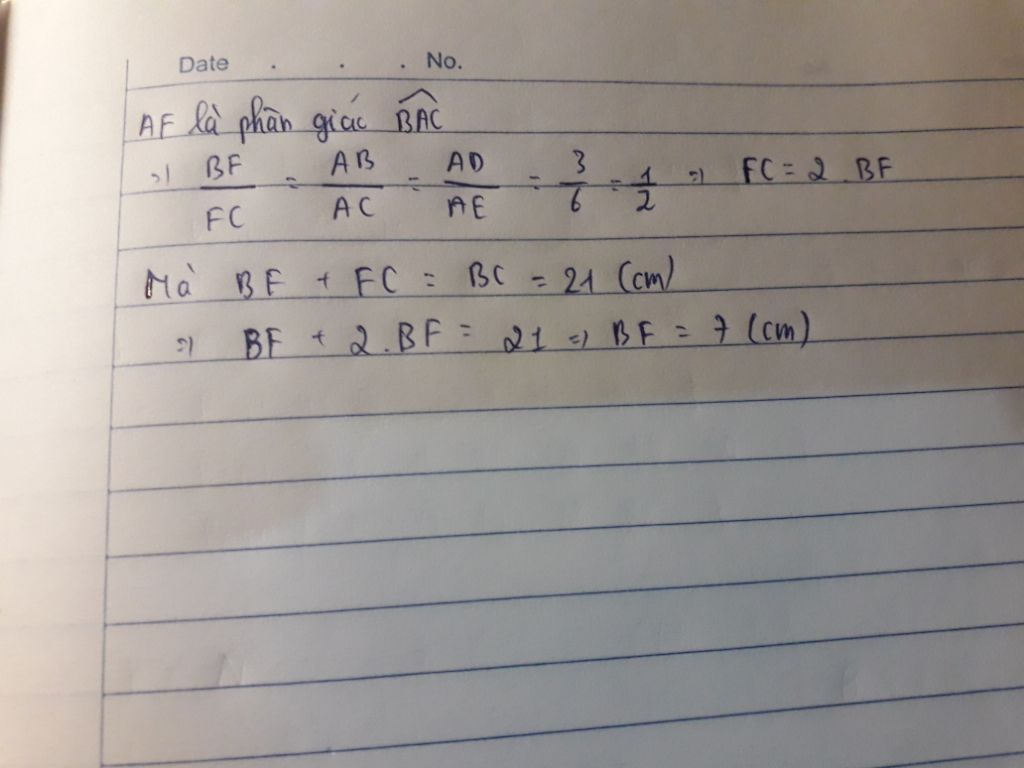 Date . . . No.
AF là phân giác \widehat{BAC}
=> BF/FC = AB/AC = AD/AE = 3/6 = 1/2 => FC = 2 . BF
Mà BF + FC = BC = 21 (cm)
=> BF + 2.BF = 21 => BF = 7 (cm)